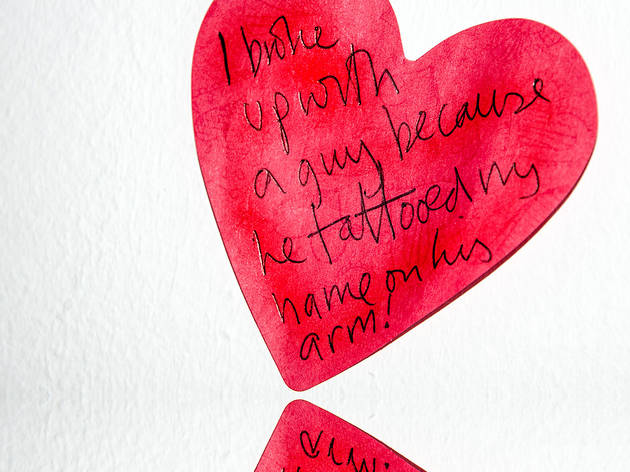 I broke
up with
a guy because
he tattooed my
name on his
arm!